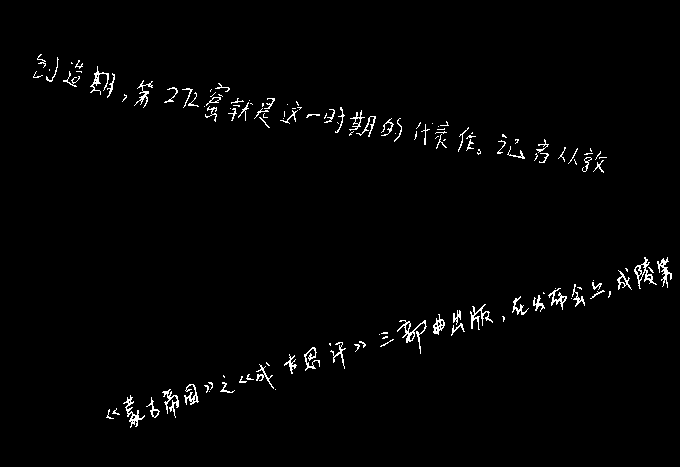 创造期，第272窟就是这一时期的代表作。记者从敦
《蒙古帝国》之《成吉思汗》三部曲出版，在发布会上，成陵第